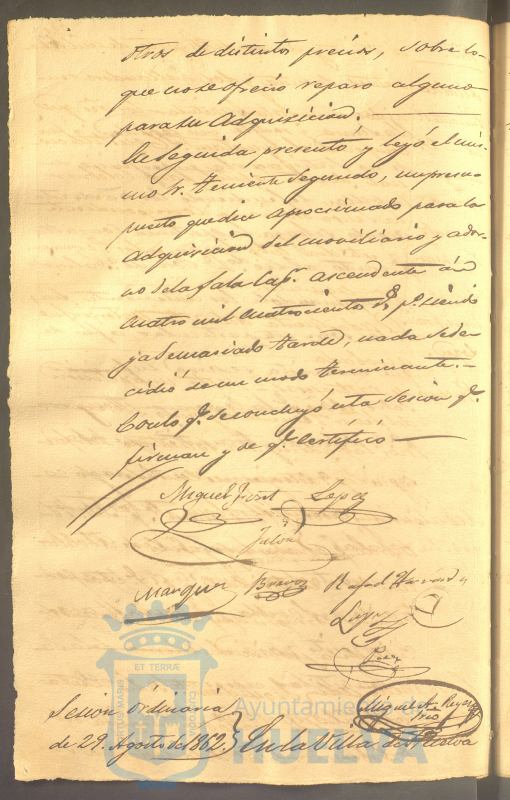 otros de distintos precios, sobre lo
que no se ofrecio reparo alguno
para su adquisicion.
En Seguida presentó y leyó el mis-
mo Sr. Teniente Segundo, un presu-
puesto que dice aprocsimado para la
adquisicion del moviliario y ador-
no de la Sala Cap.r ascendente á
cuatro mil cuatrocientos r.s p.o siendo
ya demasiado tarde, nada se de-
cidió de un modo terminante.-
Con lo q.e se concluyó esta Sesion q.e
firman y de q.e Certifico
Miguel Lopez
Jalon
Marquez Bravo Rafael
Perez
Miguel A. Reyes
Srio
Sesion ordinaria
de 29. Agosto de 1862. } En la Villa de Huelva
ET TERRÆ
Ayuntamiento de
HUELVA